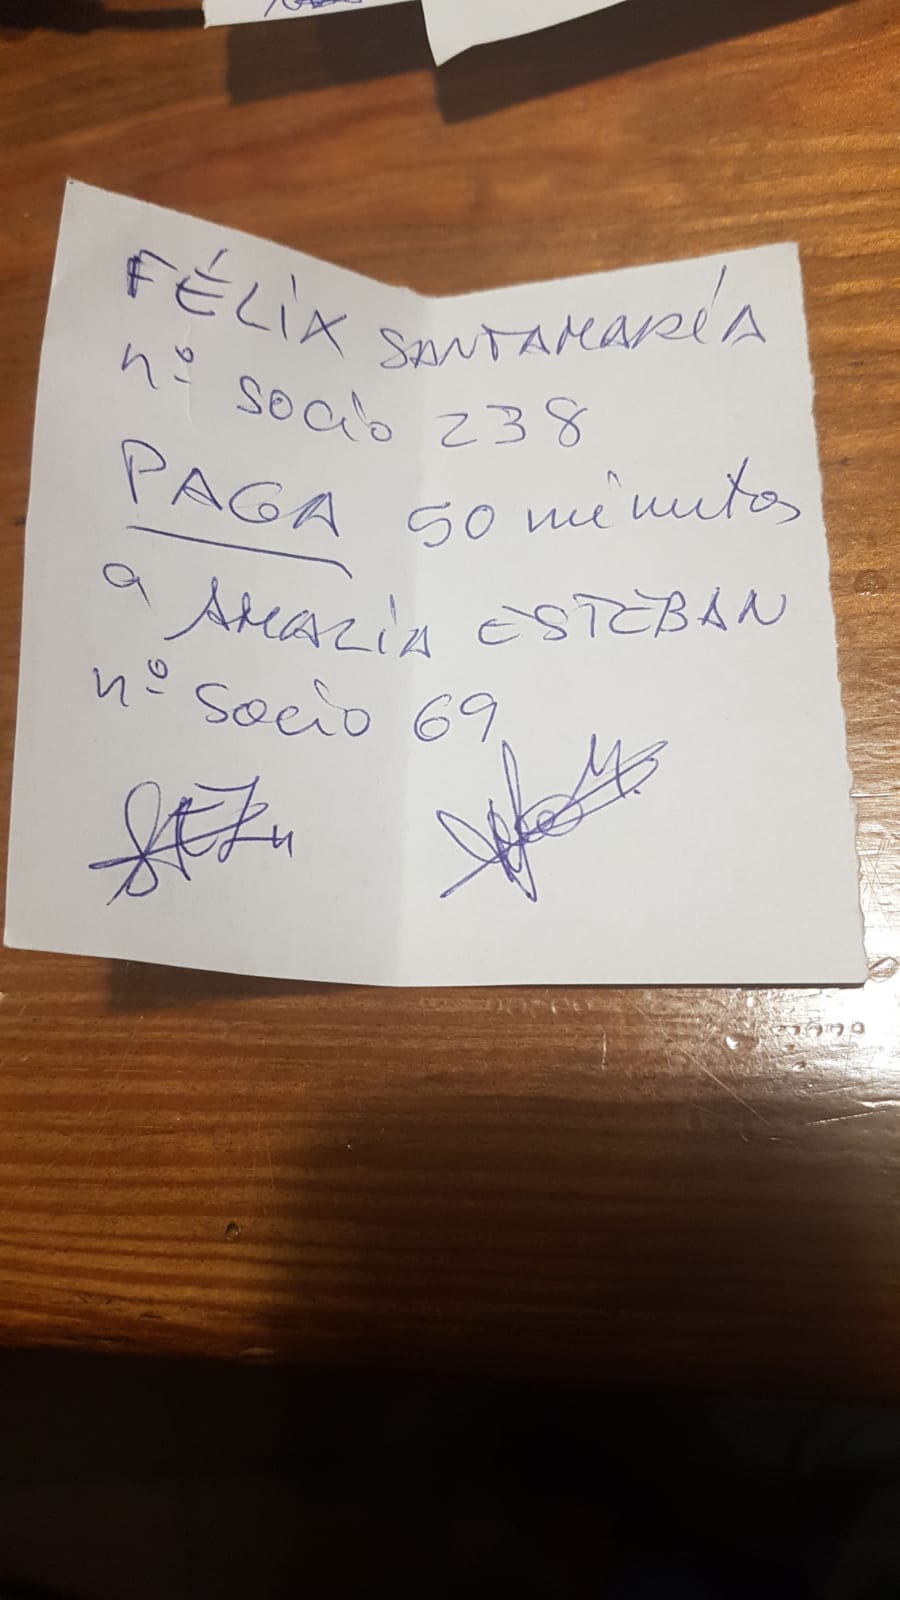 FÉLIX SANTAMARÍA
nº socio 238
PAGA 50 minutos
a AMALIA ESTEBAN
nº socio 69